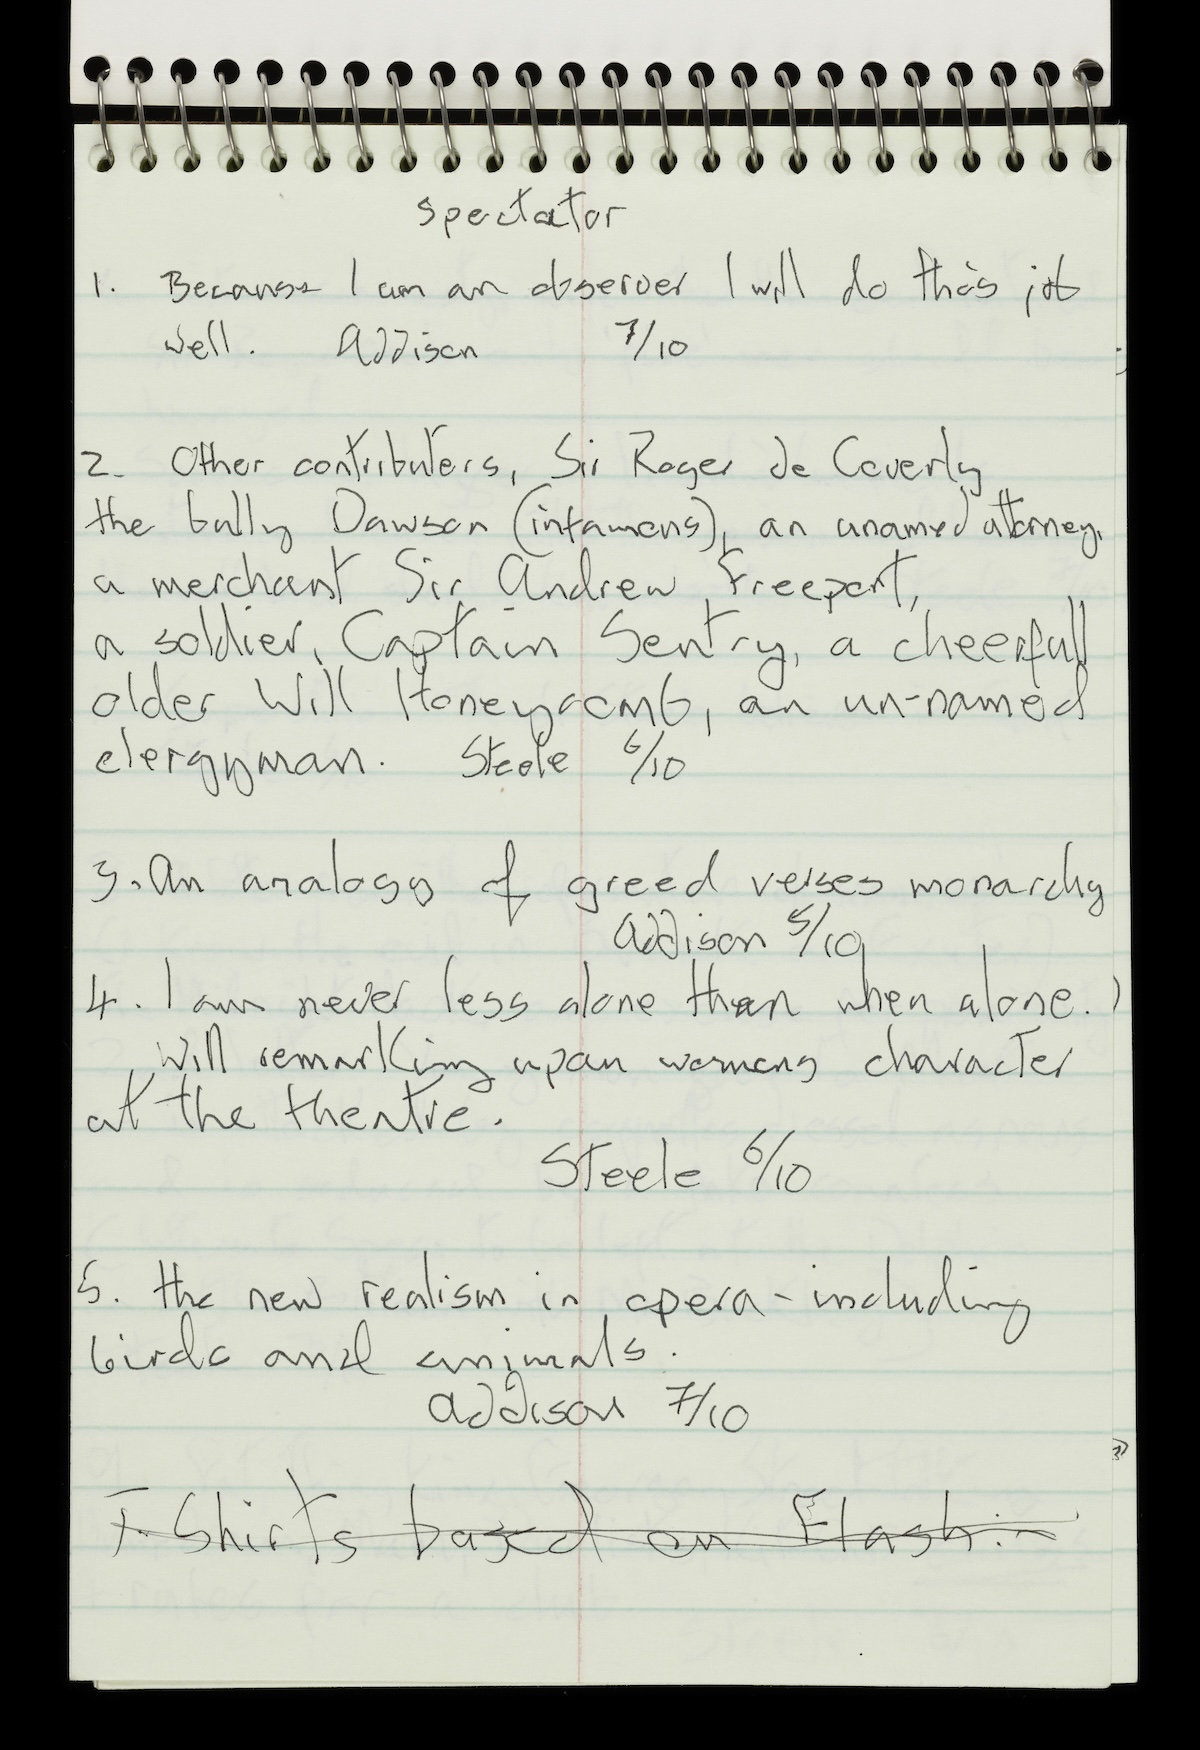 spectator
1. Because I am an observer I will do this job
well. Addison 7/10
2. Other contributers, Sir Roger de Coverly
the bully Dawson (infamous), an unamed attorney,
a merchant Sir Andrew Freeport,
a soldier, Captain Sentry, a cheerfull
older Will Honeycomb, an un-named
clergyman. Steele 6/10
3. An analogy of greed verses monarchy
Addison 5/10
4. I am never less alone than when alone.)
Will remarking upon womens character
at the theatre.
Steele 6/10
5. the new realism in opera - including
birds and animals.
Addison 7/10
T-Shirts based on Flash.